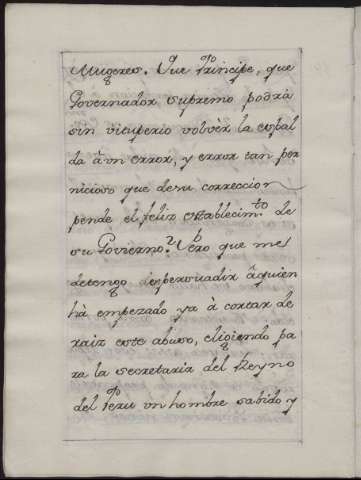 Mugeres. Que Principe, que
Governador supremo podrà
sin vicuperio volvèr la espal
da à un error, y error tan per
nicioso que de su correccion
pende el feliz establecim.to de
su Govierno? Vero que me
detengo àpersuadir à quien
hà empezado ya à cortar de
raiz este abuso, eligiendo pa
ra la secretaria del Reyno
del Peru un hombre sabido y